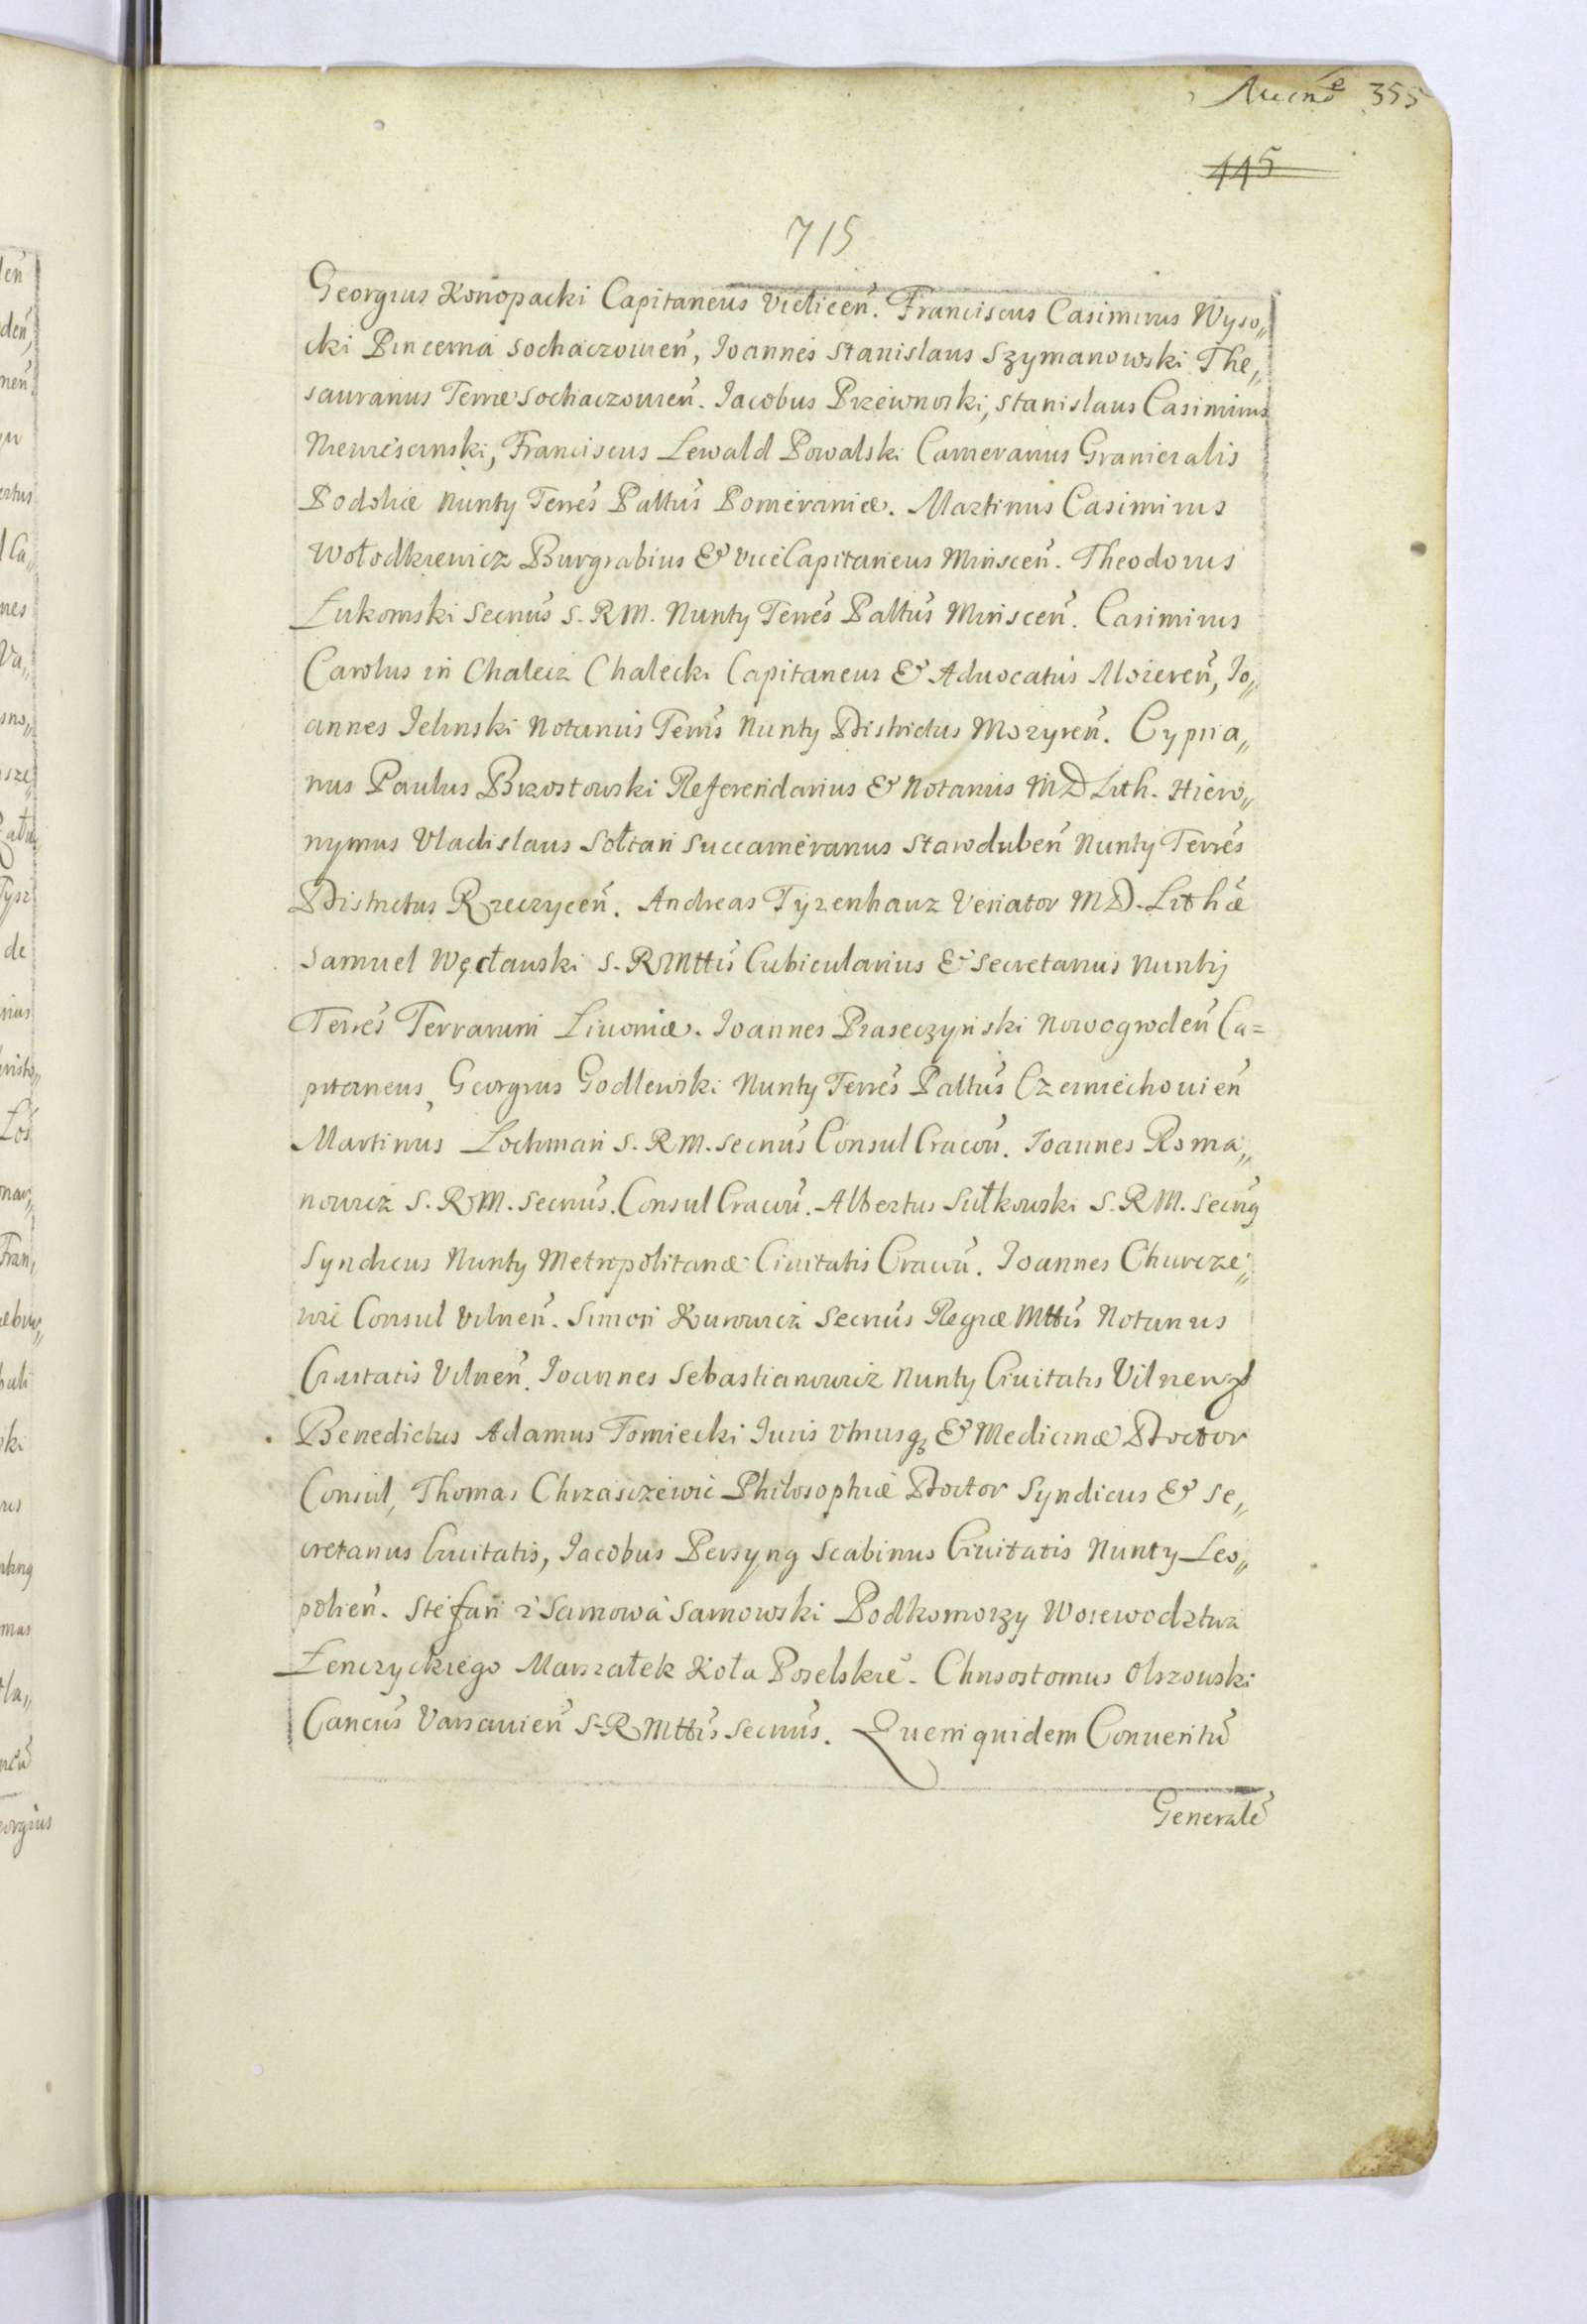 355
445
715
Georgius Konopacki Capitaneus Vielicen̄. Franciscus Casimirus Wyso„
cki Pincerna Sochaczouien̄, Joannes Stanislaus Szymanowski The„
saurarius Terræ Sochaczouien̄. Jacobus Przewnoski, Stanislaus Casimirus
Niewiescinski, Franciscus Lewald Powalski Camerarius Granicialis
Podoliæ Nunty Terres̄ Pallus̄ Pomeraniæ. Martinus Casimirus
Wołodkiewicz Burgrabius & ViceCapitaneus Minscen̄. Theodorus
Łukomski Secrius̄ S. R M. Nunty Terres̄ Pallus̄ Minscen̄. Casimirus
Carolus in Chalecz Chalecki Capitaneus & Aduocatus Mozeren̄, Jo„
annes Jelinski Notarius Terris̄ Nunty Districtus Mozyren̄. Cypria„
nus Paulus Brzostowski Referendarius & Notarius M D Lith. Hiero„
nymus Vladislaus Sołtan Succamerarius Staroduben̄ Nunty Terres̄
Districtus Rzeczycen̄. Andreas Tyzenhauz Venator M D. Lith̄æ
Samuel Węcławski S. R Mttis Cubicularius & Secretarius Nuntij
Terres̄ Terrarum Liuoniæ. Joannes Piaseczynski Nowogroden̄ Ca=
pitaneus, Georgius Godlewski Nunty Terres̄ Pallus̄ Czerniechouien̄
Martinus Lochman S. R M. Secrius̄ Consul Cracou̅. Joannes Roma„
nowicz S. R M. Secrius̄. Consul Cracou̅. Albertus Sułkowski S. R M. Secrig̅
Syndicus Nunty Metropolitanæ Ciuitatis Cracou̅. Joannes Churcze„
wic Consul Vilnen̄. Simon Kurowicz Secrius̄ Regiæ Mttis̄ Notarius
Ciuitatis Vilnen̄. Joannes Sebastianowicz Nunty Ciuitatis Vilnens
Benedictus Adamus Tomiecki Juris Vtriusq₃ & Medicinæ Doctor
Consul, Thomas Chrzasczewic Philosophiæ Doctor Syndicus & Se„
cretarius Ciuitatis, Jacobus Persyng Scabinus Ciuitatis Nunty Leo„
polien̄. Stefan z Sarnowa Sarnowski Podkomorzy Woiewodztwa
Łenczyckiego Marszałek Koła Poselskie̅. Chrisostomus Olszowski
Cancus̄ Varsauien̄ S. R Mttis̄ Secrius̄. Quem quidem Conuentu̅
Generale̅